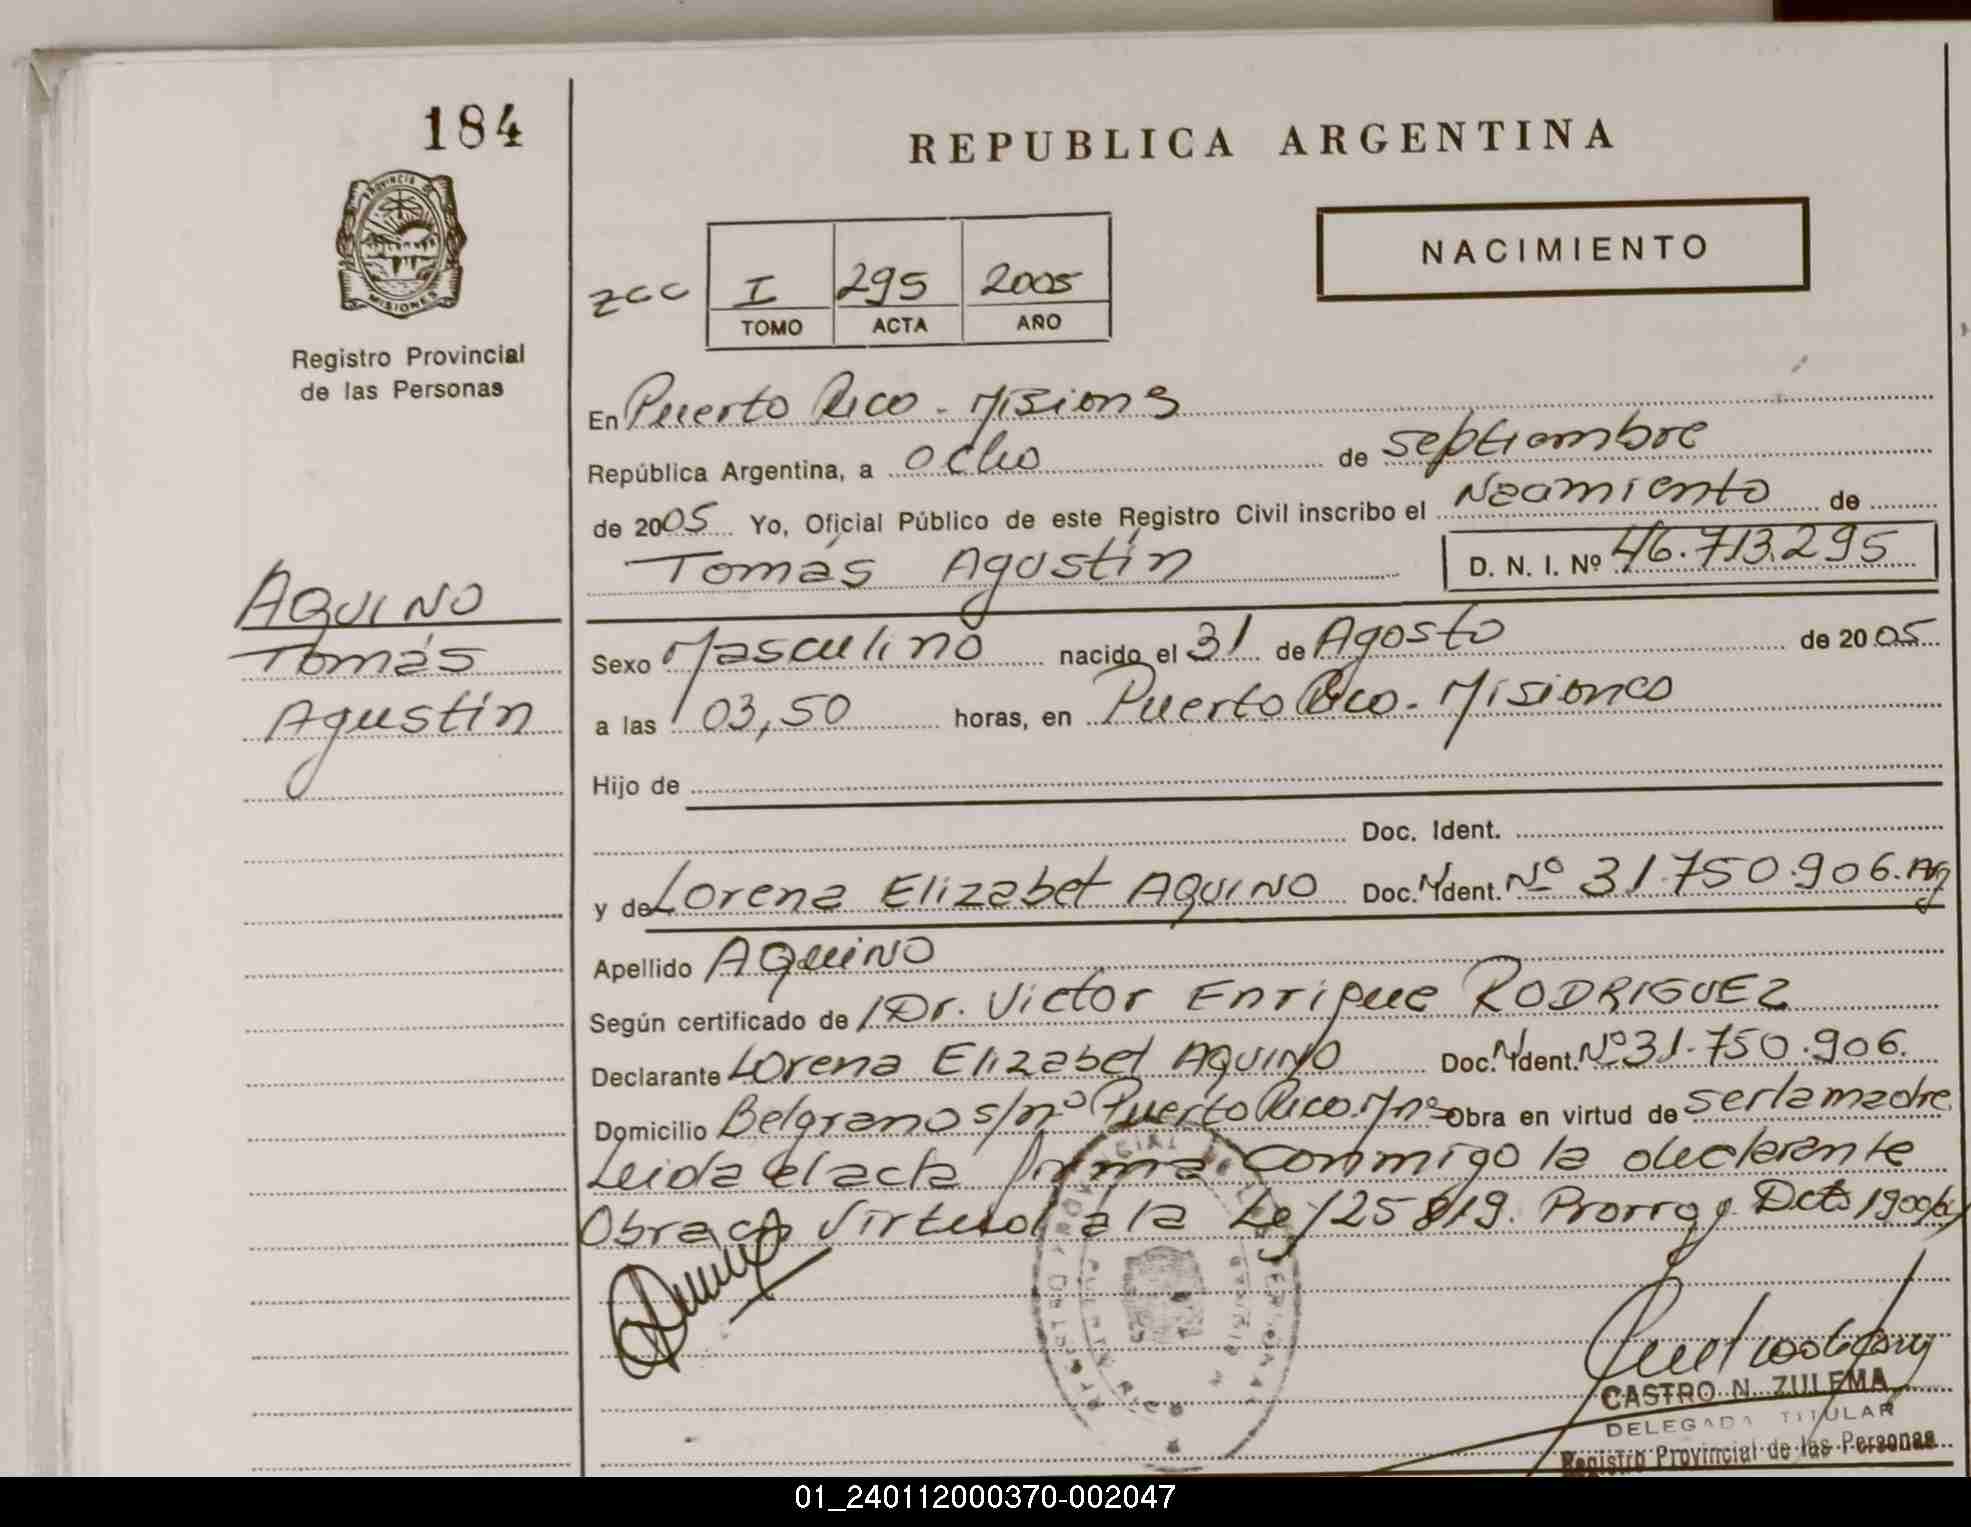 184
REPUBLICA ARGENTINA
PROVINCIA DE
MISIONES
Registro Provincial
de las Personas
NACIMIENTO
zcc I 295 2005
TOMO ACTA AÑO
En Puerto Rico - Misiones
República Argentina, a ocho de septiembre
de 2005 Yo, Oficial Público de este Registro Civil inscribo el Nacimiento de
Tomás Agustín D. N. I. Nº 46.713.295
AQUINO
Tomás
Agustín
Sexo Masculino nacido el 31 de Agosto de 2005
a las 03,50 horas, en Puerto Rico - Misiones
Hijo de
Doc. Ident.
y de Lorena Elizabet AQUINO Doc. Ident. Nº 31.750.906.
Apellido AQUINO
Según certificado de Dr. Victor Enrique RODRIGUEZ
Declarante Lorena Elizabet AQUINO Doc. Ident. Nº 31.750.906.
Domicilio Belgrano s/nº Puerto Rico Mnes Obra en virtud de ser la madre
Leida el acta firma conmigo la declarante
Obra en Virtud a la Ley 25819. Prorrog. Dcto
CASTRO N. ZULEMA
DELEGADA TITULAR
Registro Provincial de las Personas
01_240112000370-002047